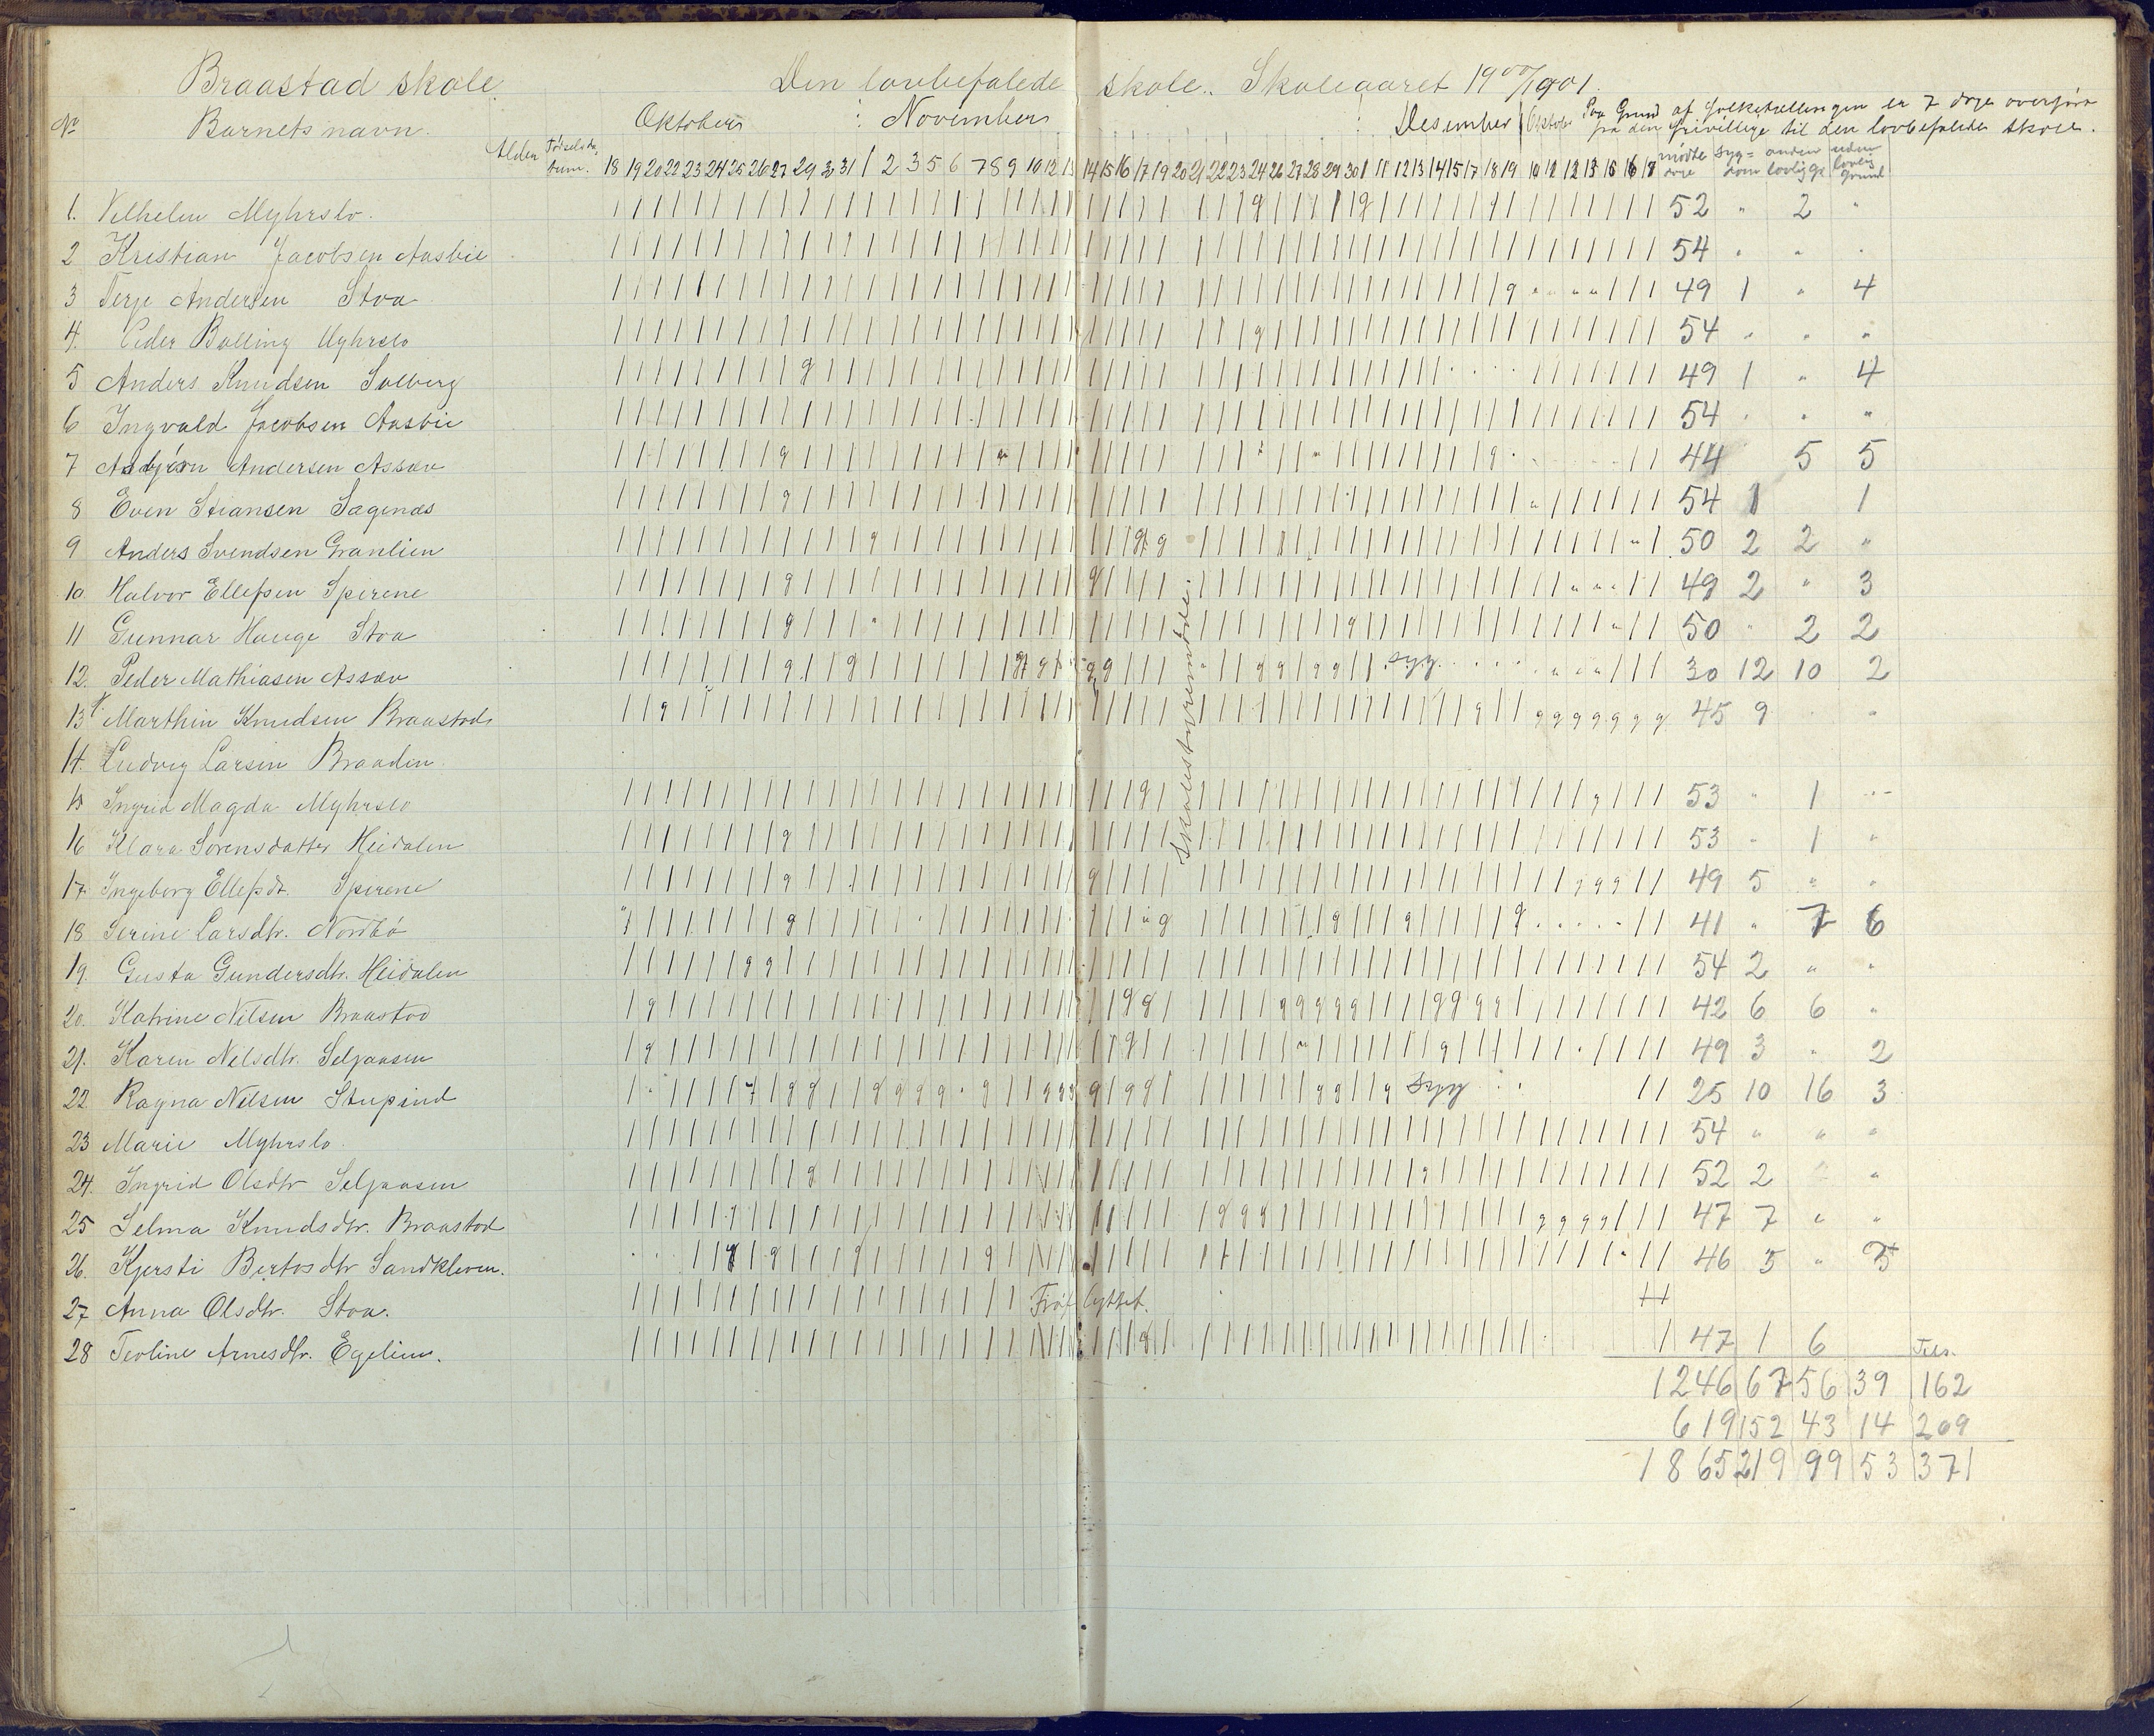 Braastad skole. Den lovbefalede skole. Skoleaaret 1900/1901.
Paa Grund af Folketællingen er 7 dage overført
fra den frivillige til den lovbefalede skole.
No Barnets navn. Alder Fødselsdatum. Oktober November Desember Oktober
18 19 20 22 23 24 25 26 27 29 30 31 1 2 3 5 6 7 8 9 10 12 13 14 15 16 17 19 20 21 22 23 24 26 27 28 29 30 1 11 12 13 14 15 17 18 19 10 11 12 13 15 16 17 mødte dage Sygdom anden lovlig gr. uden lovlig grund
1. Vilhelm Myhrslo. 52 " 2 "
2 Kristian Jacobsen Aasbie 54 " " "
3 Terje Andersen Stoa 49 1 " 4
4. Peder Bolling Myhrslo 54 " " "
5 Anders Knudsen Solberg 49 1 " 4
6 Ingvald Jacobsen Aasbie 54 " " "
7 Asbjørn Andersen Assæv 44 5 5
8 Even Stiansen Sagenæs 54 1 1
9 Anders Svendsen Granlien 50 2 2 "
10. Halvor Ellefsen Spirene 49 2 " 3
11 Gunnar Hauge Stoa 50 " 2 2
12. Peder Mathiasen Assæv syg 30 12 10 2
13 Marthin Knudsen Braastad 45 9 " "
14. Ludvig Larsen Braaden.
15 Ingrid Magda Myhrslo 53 " 1 "
16 Klara Sørensdatter Heidalen 53 " 1 "
17. Ingeborg Ellefsdt. Spirene 49 5 " "
18 Serine Larsdtr. Nordbø 41 " 7 6
19. Gusta Gundersdtr. Heidalen 54 2 " "
20. Katrine Nilsen Braastad 42 6 6 "
21. Karen Nilsdtr. Seljaasen 49 3 " 2
22. Ragna Nilsen Stupind syg 25 10 16 3
23 Marie Myhrslo. 54 " " "
24. Ingrid Olsdtr Seljaasen 52 2 "
25 Selma Knudsdtr. Braastad 47 7 " "
26. Kjersti Bertosdtr Sandkleven. 46 5 " 3
27 Anna Olsdtr. Stoa. Fraflyttet.
28 Teoline Arnesdtr. Egelien. 47 1 6
Skolestyremøde.
Tils.
1246 67 56 39 162
619 152 43 14 209
1865 219 99 53 371